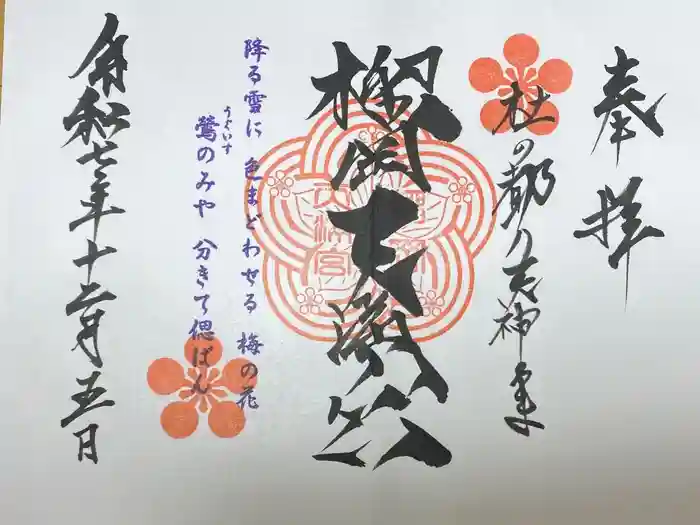 奉拝
杜の都の天神さま
榴岡天満宮
榴岡
天満宮
降る雪に 色まどわせる 梅の花
うぐいす
鶯のみや 分きて偲ばん
令和七年十二月五日